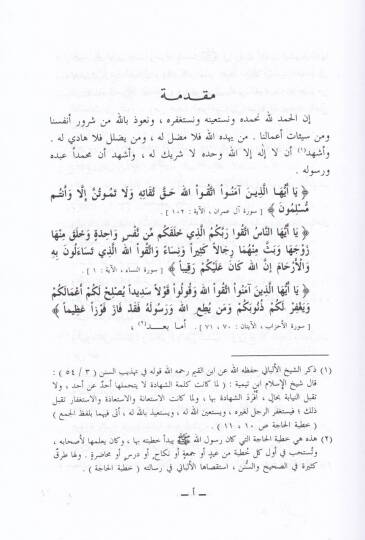 مقدمة
إن الحمد لله نحمده ونستعينه ونستغفره ، ونعوذ بالله من شرور أنفسنا
ومن سيئات أعمالنا . من يهده الله فلا مضل له ، ومن يضلل فلا هادي له .
وأشهد(١) أن لا إله إلا الله وحده لا شريك له ، وأشهد أن محمداً عبده
ورسوله .
﴿ يَا أَيُّهَا الَّذِينَ آمَنُوا اتَّقُوا اللهَ حَقَّ تُقَاتِهِ وَلَا تَمُوتُنَّ إِلَّا وَأَنتُم
مُّسْلِمُونَ ﴾ [ سورة آل عمران ، الآية : ١٠٢ ] .
﴿ يَا أَيُّهَا النَّاسُ اتَّقُوا رَبَّكُمُ الَّذِي خَلَقَكُم مِّن نَّفْسٍ وَاحِدَةٍ وَخَلَقَ مِنْهَا
زَوْجَهَا وَبَثَّ مِنْهُمَا رِجَالاً كَثِيراً وَنِسَاءً وَاتَّقُوا اللهَ الَّذِي تَسَاءَلُونَ بِهِ
وَالْأَرْحَامَ إِنَّ اللهَ كَانَ عَلَيْكُمْ رَقِيباً ﴾ [ سورة النساء ، الآية : ١ ] .
﴿ يَا أَيُّهَا الَّذِينَ آمَنُوا اتَّقُوا اللهَ وَقُولُوا قَوْلاً سَدِيداً يُصْلِحْ لَكُمْ أَعْمَالَكُمْ
وَيَغْفِرْ لَكُمْ ذُنُوبَكُمْ وَمَن يُطِعِ اللهَ وَرَسُولَهُ فَقَدْ فَازَ فَوْزاً عَظِيماً ﴾
[ سورة الأحزاب ، الآيتان : ٧٠ ، ٧١ ] . أما بعد(٢) ،
(١) ذكر الشيخ الألباني حفظه الله عن ابن القيم رحمه الله قوله في تهذيب السنن ( ٣ / ٥٤ ) :
قال شيخ الإسلام ابن تيمية : ( لما كانت كلمة الشهادة لا يتحملها أحدٌ عن أحد ، ولا
تقبل النيابة بحال ، أفرد الشهادة بها ، ولما كانت الاستعانة والاستعاذة والاستغفار تقبل
ذلك ؛ فيستغفر الرجل لغيره ، ويستعين الله له ، ويستعيذ بالله له ، أتى فيهما بلفظ الجمع )
( خطبة الحاجة ص ١٠ ، ١١ ) .
(٢) هذه هي خطبة الحاجة التي كان رسول الله ﷺ يبدأ خطبته بها ، وكان يعلمها لأصحابه ،
وتُستحب في أول كل خطبة من عيد أو جمعةٍ أو نكاح أو درس أو محاضرة . ولها طرقٌ
كثيرة في الصحيح والسُّنن ، استقصاها الألباني في رسالته ( خطبة الحاجة ) .
— أ —